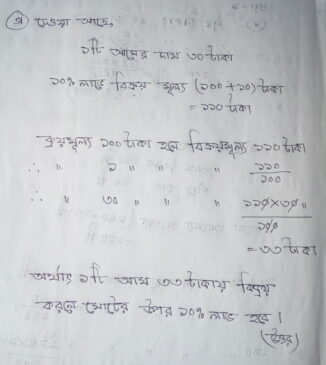 (গ) দেওয়া আছে,
১টি আমের দাম ৩০ টাকা
১০% লাভে বিক্রয় মূল্য (১০০ + ১০) টাকা
= ১১০ টাকা
ক্রয়মূল্য ১০০ টাকা হলে বিক্রয়মূল্য ১১০ টাকা
∴ " ১ " " " ১১০/১০০
∴ " ৩০ " " " ১১০×৩০/১০০ "
= ৩৩ টাকা
অর্থাৎ ১টি আম ৩৩ টাকায় বিক্রয়
করলে মোটের উপর ১০% লাভ হবে।
(উত্তর)